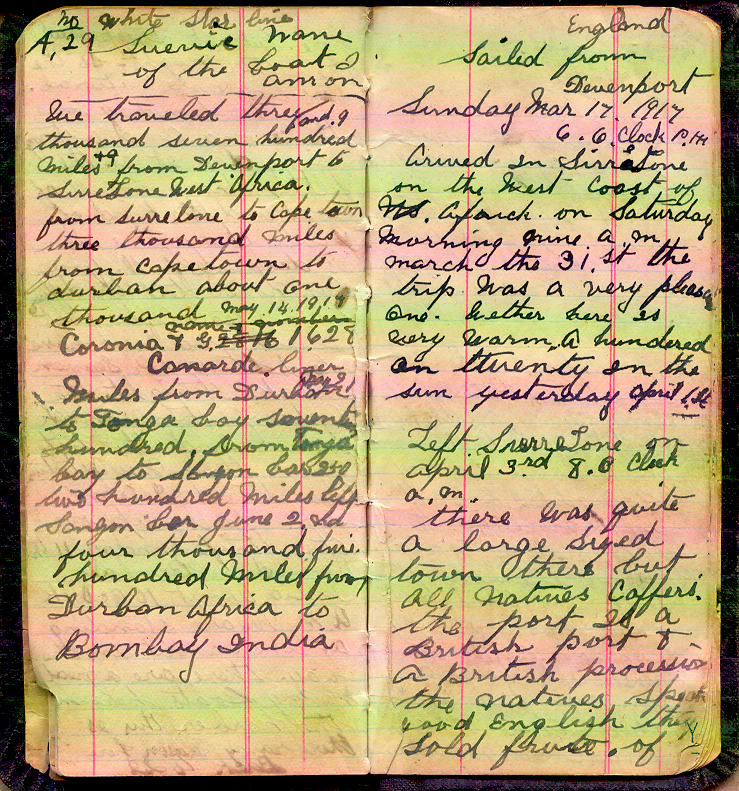 no White Star line
A, 29 Suevic Name
of the boat I
am on
We traveled three and 9
thousand seven hundred
Miles +9 from Devenport to
SirreLone West Africa.
from Surrelone to Cape town
three thousand miles
from Capetown to
durban about one
thousand May. 14. 1917
Coronia & 1628
Canarde. liner
Miles from Durban May 21
to Tonga bay seventy
hundred. from Tonga
bay to Sangon bar 240
two hundred Miles left
Sangon bar June 2, nd
four thousand five.
hundred Miles from
Durban Africa to
Bombay India
England
Sailed from
Devenport
Sunday Mar 17. 1917
6. O. Clock P. M
Arived In SirreLone
on the West Coast of
Africk. on Saturday
Morning nine. a. m
march the 31. st the
trip was a very pleasa
one. Wether here is
very warm. A hundered
an twenty in the
sun yesterday April 1. st
Left SierreLone on
April 3rd 8. O Clock
a. m.
there was quite
a large sized
town there but
All Natives Caffers.
the port is a
British port &
A British procession
the natives Speak
good English they
Sold frute. of